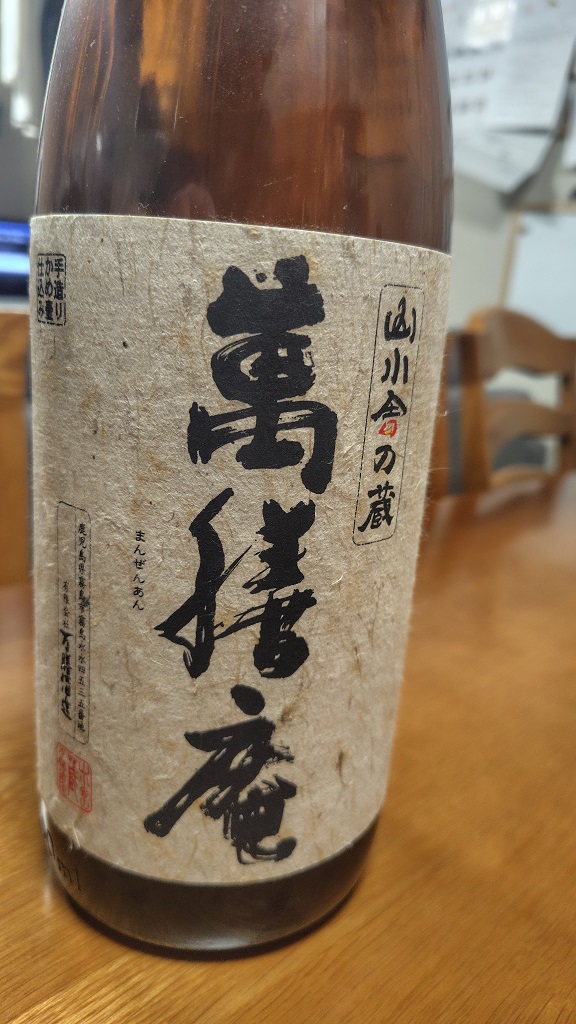 山小舎の蔵
萬膳庵
まんぜんあん
手造り
かめ壷
仕込み
鹿児島県霧島市霧島永水四五三五番地
有限会社 万膳酒造